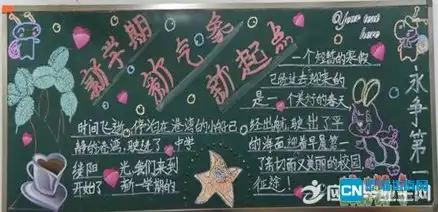 新学期
新气象
新起点
Your text
here
一个短暂的寒假
已经过去迎来的
是一个美好的春天
时间飞逝,停泊在港湾的小船已
经出航,驶出了平
静的港湾,驶进了
的海面,迎着早晨第一
缕阳光,我们来到
了亲切而又美丽的校园
开始了新一学期的
征途!
永争第一
CN